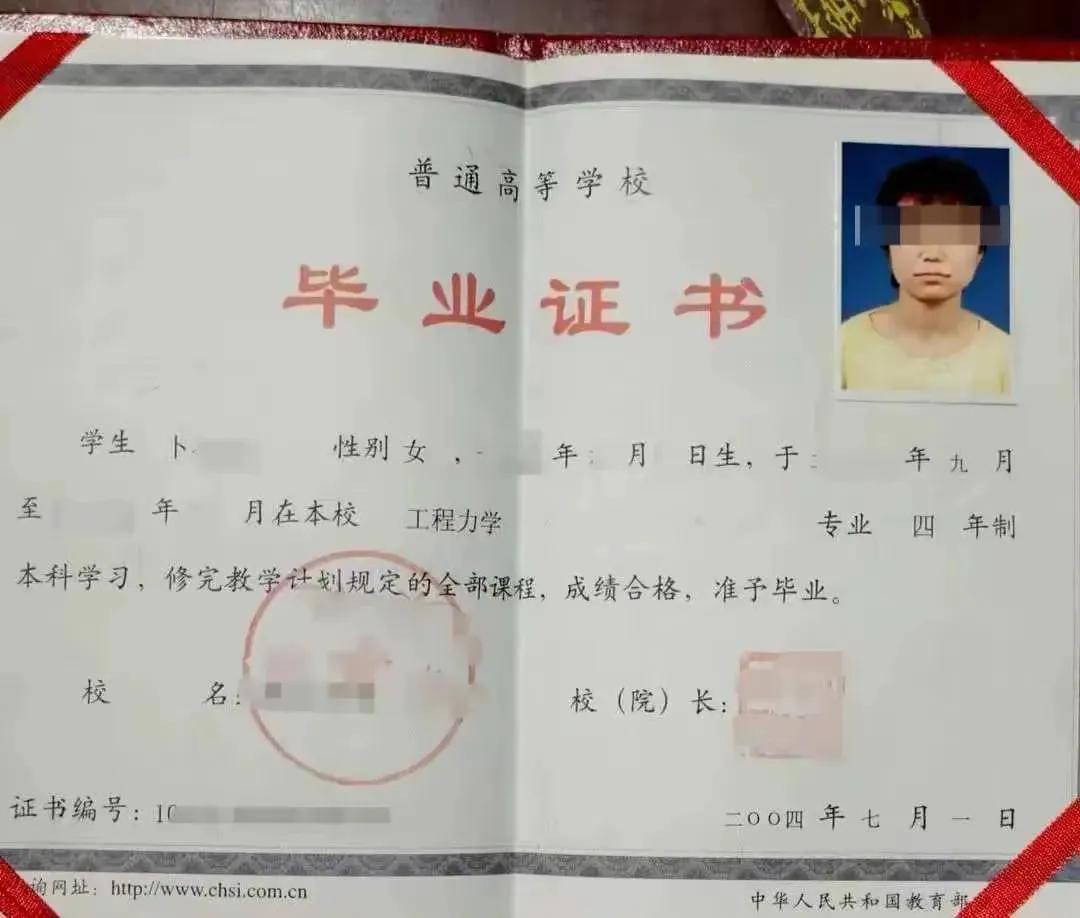 普通高等学校
毕业证书
学生 卜 性别 女 , 年 月 日生, 于 年 九 月
至 年 月在本校 工程力学 专业 四 年制
本科学习, 修完教学计划规定的全部课程, 成绩合格, 准予毕业。
校 名: 校（院）长:
证书编号: 10 二〇〇四 年 七 月 一 日
询网址: http://www.chsi.com.cn 中华人民共和国教育部